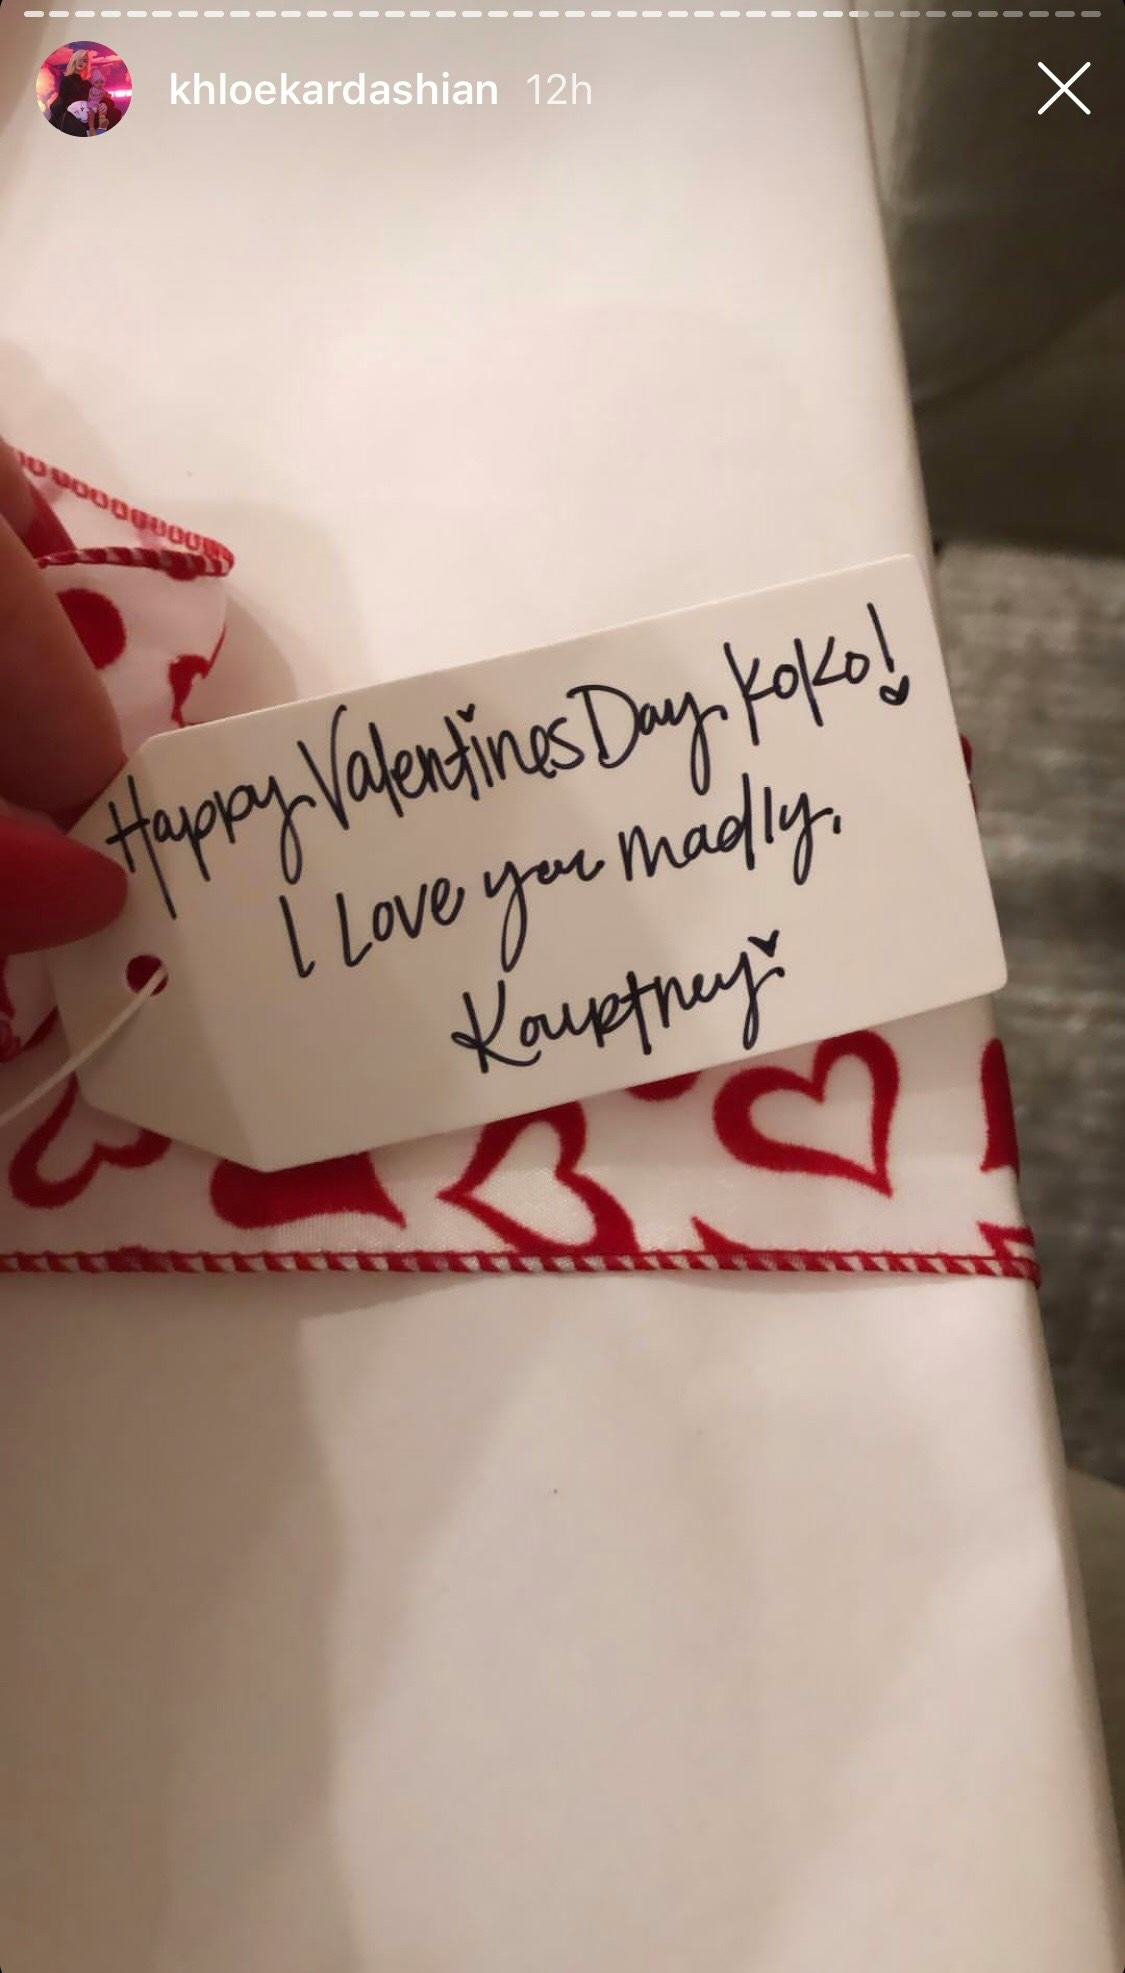 khloekardashian 12h
Happy Valentines Day KoKo!
I Love you madly.
Kourtney